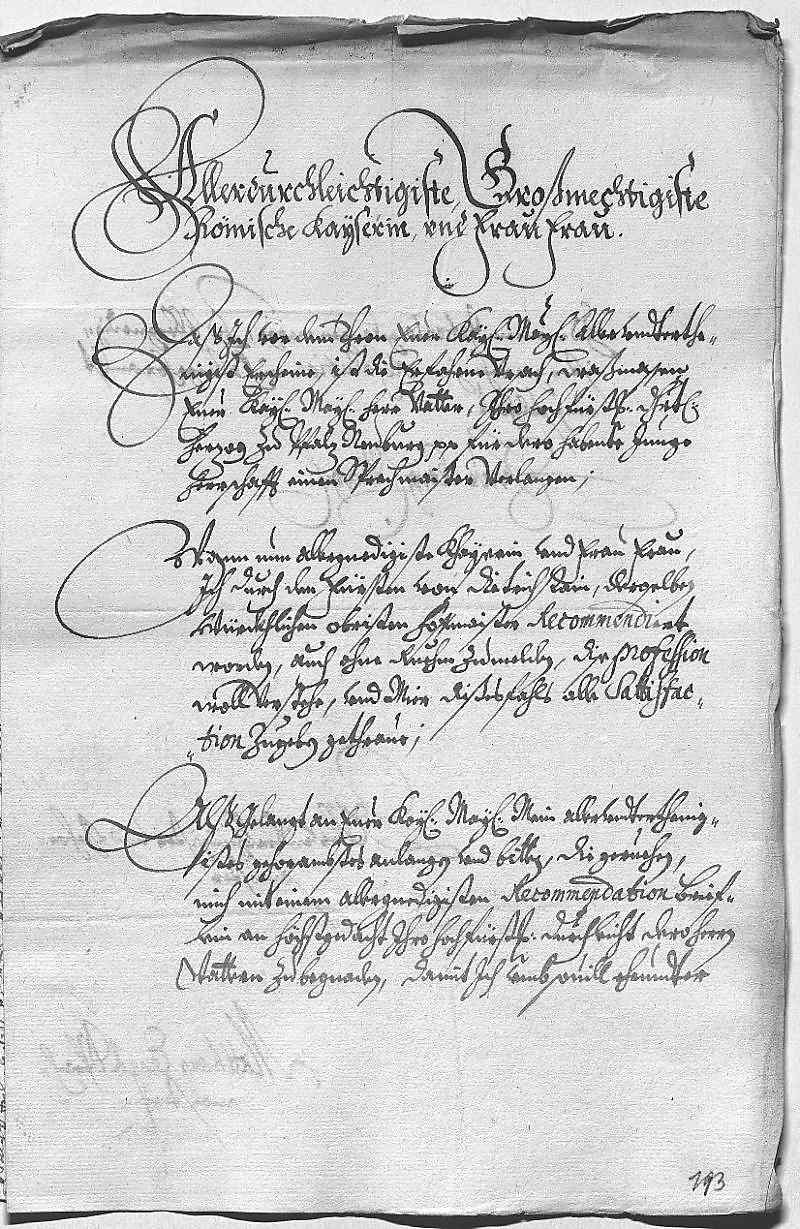 Allerdurchleichtigiste, Großmechtigiste
Römische Kayserin, vnd Frau Frau.
Daß Ich vor dem Thron Euer Kay: May: Allervnderthe-
nigist Erscheine, ist die Erfahrne Vrsach, waßmasen
Euer Kay: May: Herr Vatter, Ihro hochfürstl: Dhrl:
Herzog zu Pfalz Neuburg pp für dero habente Junge
Herrschafft einen Sprachmaister Verlangen;
Wann nun allergnedigiste Khayserin vnd Frau Frau,
Ich durch den Fürsten von Dietrichstain, derselben
Würckhlichen obristen Hofmaister Recommendirt
worden, auch ohne Ruehm zumelden, die Profession
woll Verstehe, vnd Mier dißesfahls alle Sattisfac-
tion Zugeben gethraue;
Alß Gelangt an Euer Kay: May: Mein allervnderthenig-
istes gehorsambstes anlangen vnd bitten, die geruehen,
mich mit einem allergnedigisten Recommendation brief-
lein an höchstgedacht Ihro hochfürstl: Durchleicht dero Herrn
Vattern zubegnaden, damit Ich vmb souill ehender
193